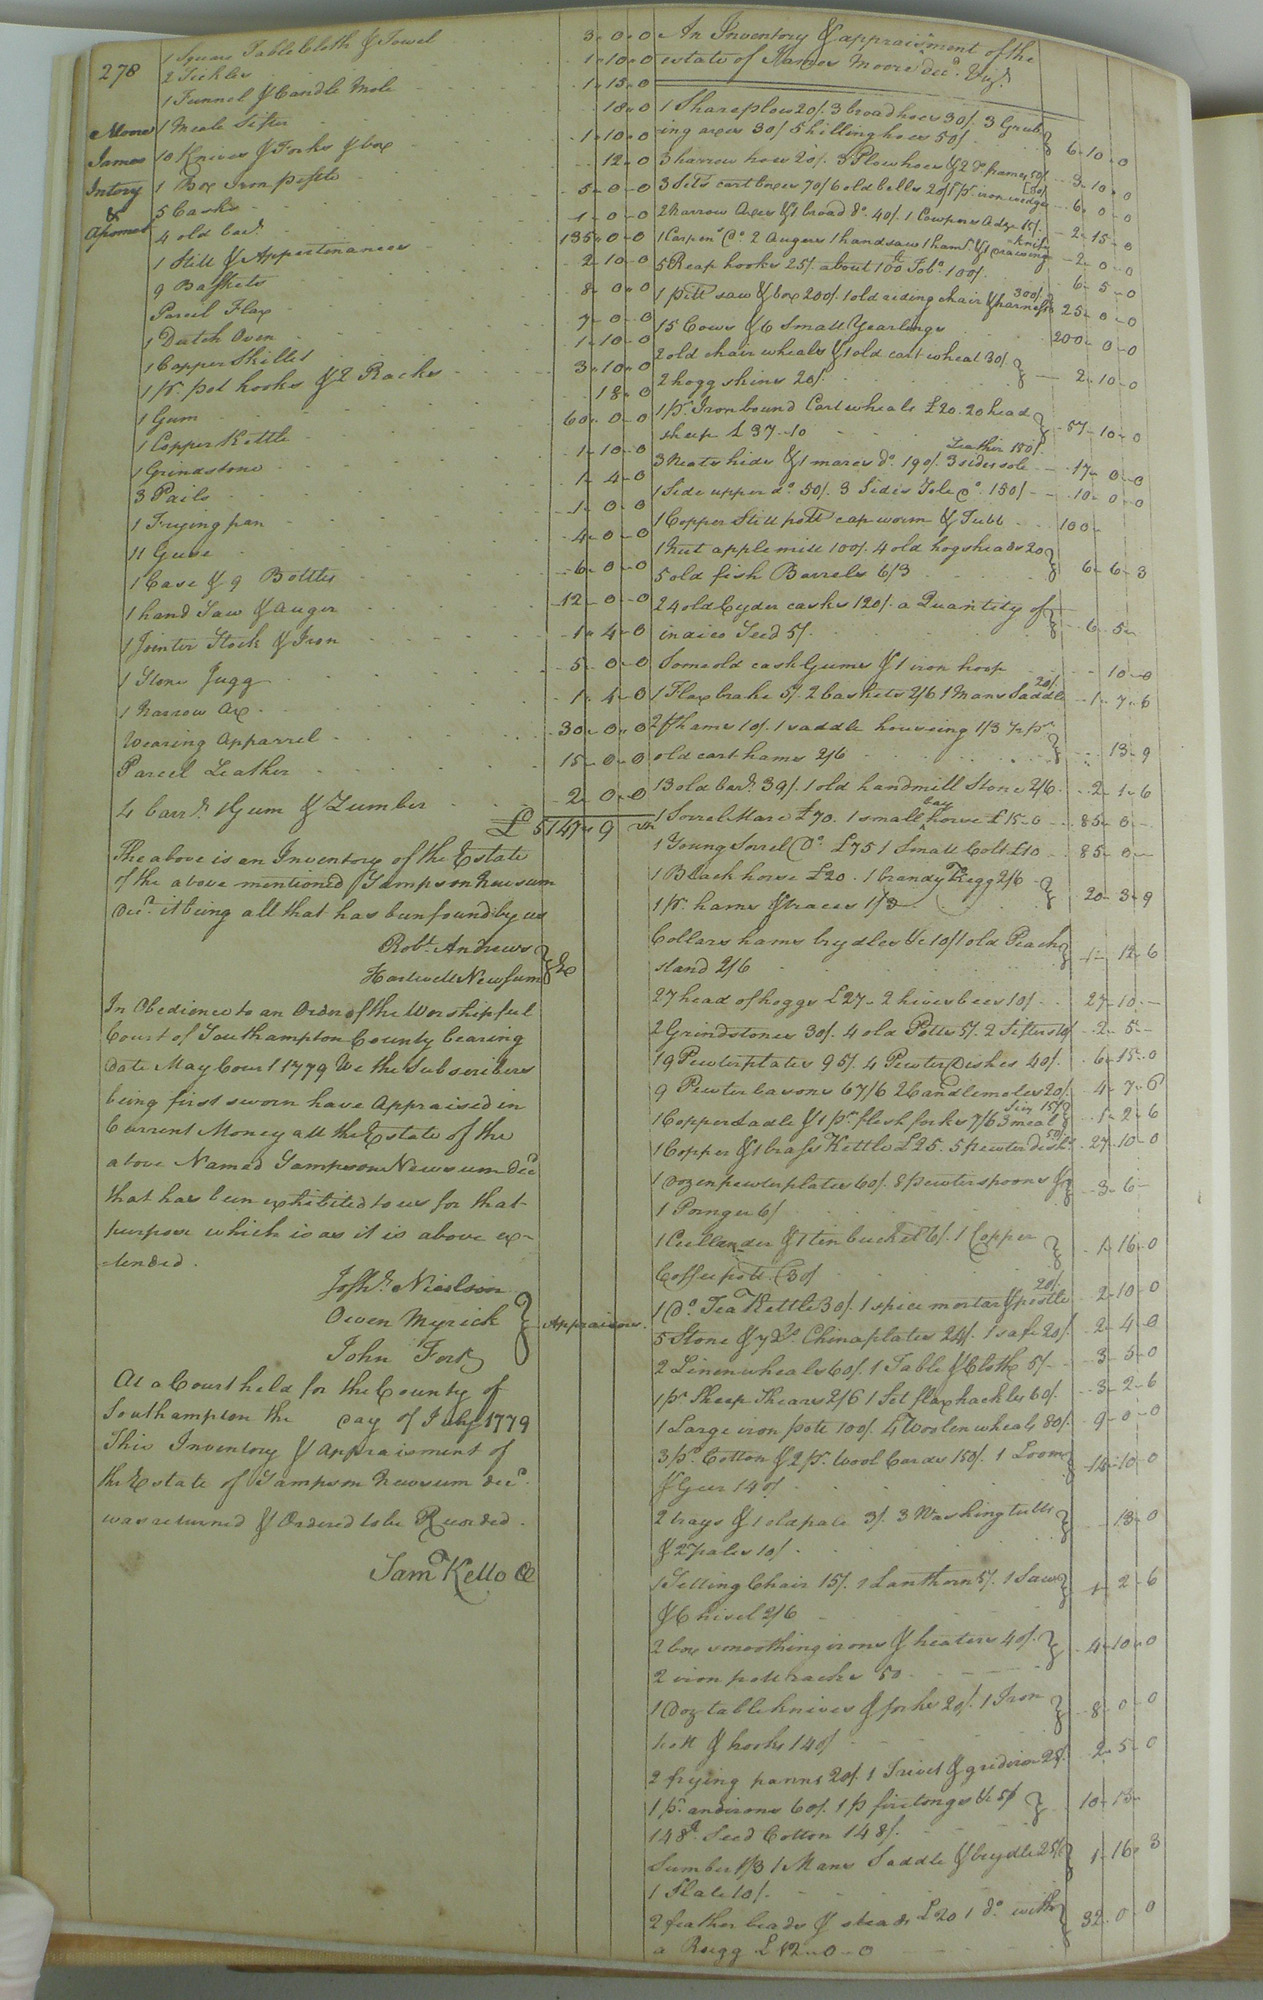 278
Moore
James
Intory
&
Apramt
1 Square Table Cloth & Towel 3-0-0
2 Sickles 1-10-0
1 Funnel & Candle Mole 1-15-0
1 Meale Sifter 18-0
10 Knives & Forks & box 1-10-0
1 Box Iron pestle 12-0
5 Casks 5-0-0
4 old barls 1-0-0
1 Still & Appertenances 135-0-0
9 Baskets 2-10-0
Parcel Flax 8-0-0
1 Dutch Oven 7-0-0
1 Copper Skillet 1-10-0
1 pr. pot hooks & 2 Racks 3-10-0
1 Gum 18-0
1 Copper Kettle 60-0-0
1 Grindstone 1-10-0
3 Pails 1-4-0
1 Frying pan 1-0-0
11 Geese 4-0-0
1 Case & 9 Bottles 6-0-0
1 hand Saw & Auger 12-0-0
1 Jointer Stock & Iron 1-4-0
1 Stone Jugg 5-0-0
1 Narrow Ax 1-4-0
Wearing Apparrel 30-0-0
Parcel Leather 15-0-0
4 barrs. Gum & Lumber 2-0-0
£ 5147-9
The above is an Inventory of the Estate
of the above mentioned Sampson Newsum
Decd. it being all that has been found by us
Robt. Andrews
Hartwell Newsum } Ex
In Obedience to an Order of the Worshipful
Court of Southampton County bearing
date May Court 1779 We the Subscribers
being first sworn have Appraised in
Current Money all the Estate of the
above Named Sampson Newsum Decd
that has been exhibited to us for that
purpose which is as it is above ex-
-tended.
Josha. Nicolson
Owen Myrick } Appraisers
John Fort
At a Court held for the County of
Southampton the day of July 1779
This Inventory & Appraisment of
the Estate of Sampson Newsum Decd.
was returned & Ordered to be Recorded.
Saml Kello CC
An Inventory & appraisment of the
estate of James Moore decd. Vizt.
1 Shareplow 20/. 3 broad hoes 30/. 3 Grub
ing axes 30/ 5 hilling hoes 50/ } 6-10-0
3 harrow hoes 20/. 3 Plow hoes & 2 do. frames 50/. 3-10-0
3 Sets cart boxes 70/ 6 old bells 20/ 1 pr. iron wedges [30/ 6-0-0
2 Narrow Axes & 1 broad do. 40/. 1 Coopers Adze 15/. 2-15-0
1 Carpens. Do. 2 Augers 1 handsaw 1 hamr. & 1 drawing knife 2-0-0
5 Reap hooks 25/. about 100 lb Tobo. 100/. 6-5-0
1 pitt saw & box 200/. 1 old riding chair & harness 300/. 25-0-0
15 Cows & 6 Small Yearlings 200-0-0
2 old chair wheals & 1 old cart wheal 30/
2 hogg skins 20/. } 2-10-0
1 pr. Iron bound Cart wheals £20. 20 head
sheep £ 37-10 } 57-10-0
3 Neats hides & 1 mares do. 190/. 3 sides sole Leather 150/. 17-0-0
1 Side upper do. 50/. 3 Sides Sole Do. 150/ 10-0-0
1 Copper Still pott cap worm & Tubb 100-
1 Nut apple mill 100/. 4 old hogsheads 20
5 old fish Barrels 6/3 } 6-6-3
24 old Cyder casks 120/. a Quantity of
indico Seed 5/. } 6-5-
Some old cask Gums & 1 iron hoop 10-0
1 Flax brake 5/. 2 baskets 2/6 1 Mans Saddle 20/. 1-7-6
2 fhams 10/. 1 saddle houseing 1/3 pr
old cart hams 2/6 } 13-9
13 old barls. 39/. 1 old handmill Stone 2/6 2-1-6
1 Sorrel Mare £70. 1 small bay horse £15-0 85-0-
1 Young Sorrel Do £75 1 Small Colt £10 85-0-
1 Black horse £20. 1 brandy Kegg 2/6
1 pr. hams & traces 1/3 } 20-3-9
Collars hams brydles &c 10/ 1 old Peach
stand 2/6 } 12-6
27 head of hoggs £27-2 hives bees 10/ 27-10-
2 Grindstones 30/. 4 old Potts 5/. 2 Sifters 10/ 2-5-
19 Pewter plates 95/. 4 Pewter Dishes 40/. 6-15-0
9 Pewter basons 67/6 2 Candlemoles 20/. 4-7-6
1 Copper Ladle & 1 pr. flesh forks 7/6 3 meal Siv 15/ } 1-2-6
1 Copper & 1 brass Kettle £25. 5 pewter dishs. 50/ 27-10-0
1 Dozen pewter plates 60/. 8 pewter spoons &
1 Poringer 6/ } 3-6-
1 Cullander & 1 tin bucket 6/. 1 Copper
Coffee pott 30/ } 1-16-0
1 Do. Tea Kettle 30/. 1 spice mortar & pestle 20/. 2-10-0
5 Stone & 7 Do China plates 24/. 1 safe 20/. 2-4-0
2 Linen wheals 60/. 1 Table & Cloth 5/ 3-5-0
1 pr. Sheep Shears 2/6 1 Set flax hackles 60/. 3-2-6
1 Large iron pote 100/. 4 Woolen wheals 80/. 9-0-0
3 pr. Cotton & 2 pr. Wool Cards 150/. 1 Loom
& Geer 140/ } 14-10-0
2 trays & 1 old pale 3/. 3 Washing tubbs
& 2 pales 10/ } 13-0
1 Setting Chair 15/. 1 Lanthorn 5/. 1 Saw
& Chisel 2/6 } 1-2-6
2 box smoothing irons & heaters 40/.
2 iron pott racks 50 } 4-10-0
1 Doz table knives & forks 20/. 1 Iron
pott & hooks 140/ } 8-0-0
2 frying panns 20/. 1 Trivet & gridiron 25/. 2-5-0
1 pr. andirons 60/. 1 p firetongs &c 5/
148 lb. Seed Cotton 148/. } 10-13-
Lumber 1/3 1 Mans Saddle & brydle 25/
1 Slate 10/. } 1-16-3
2 feather beads & steads £20 1 do. with
a Rugg £12-0-0 } 32-0-0